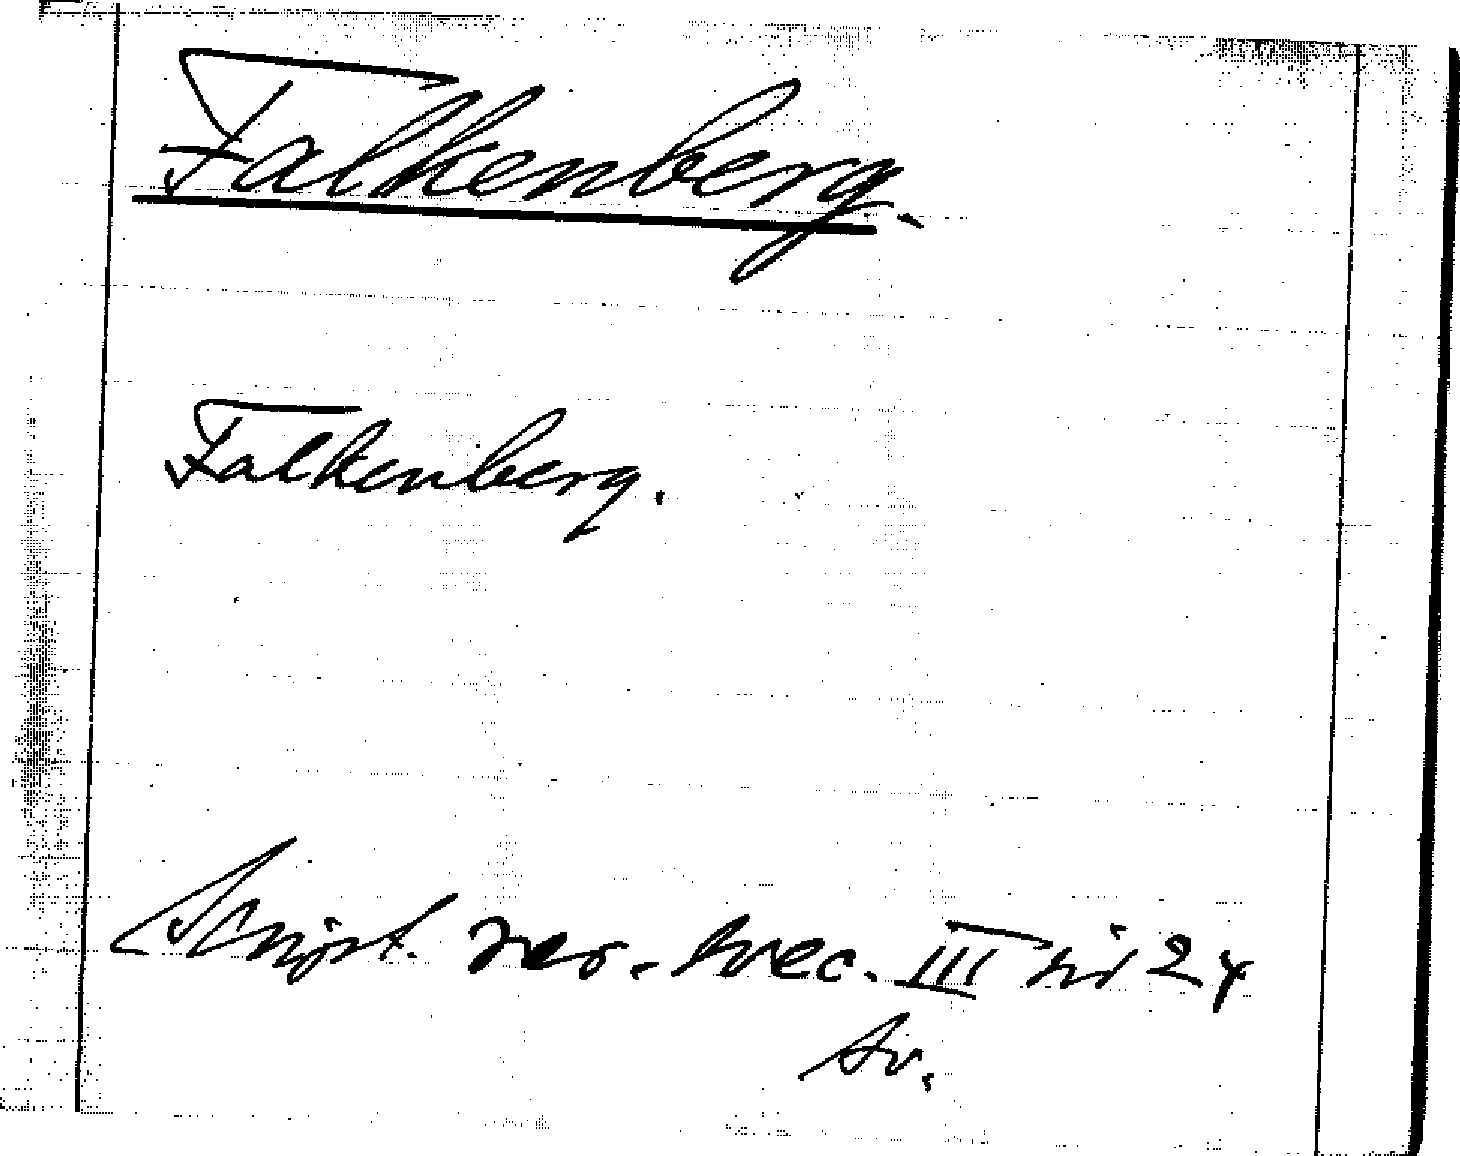 Falkenberg.
Falkenberg.
Script. rer. svec. III 24